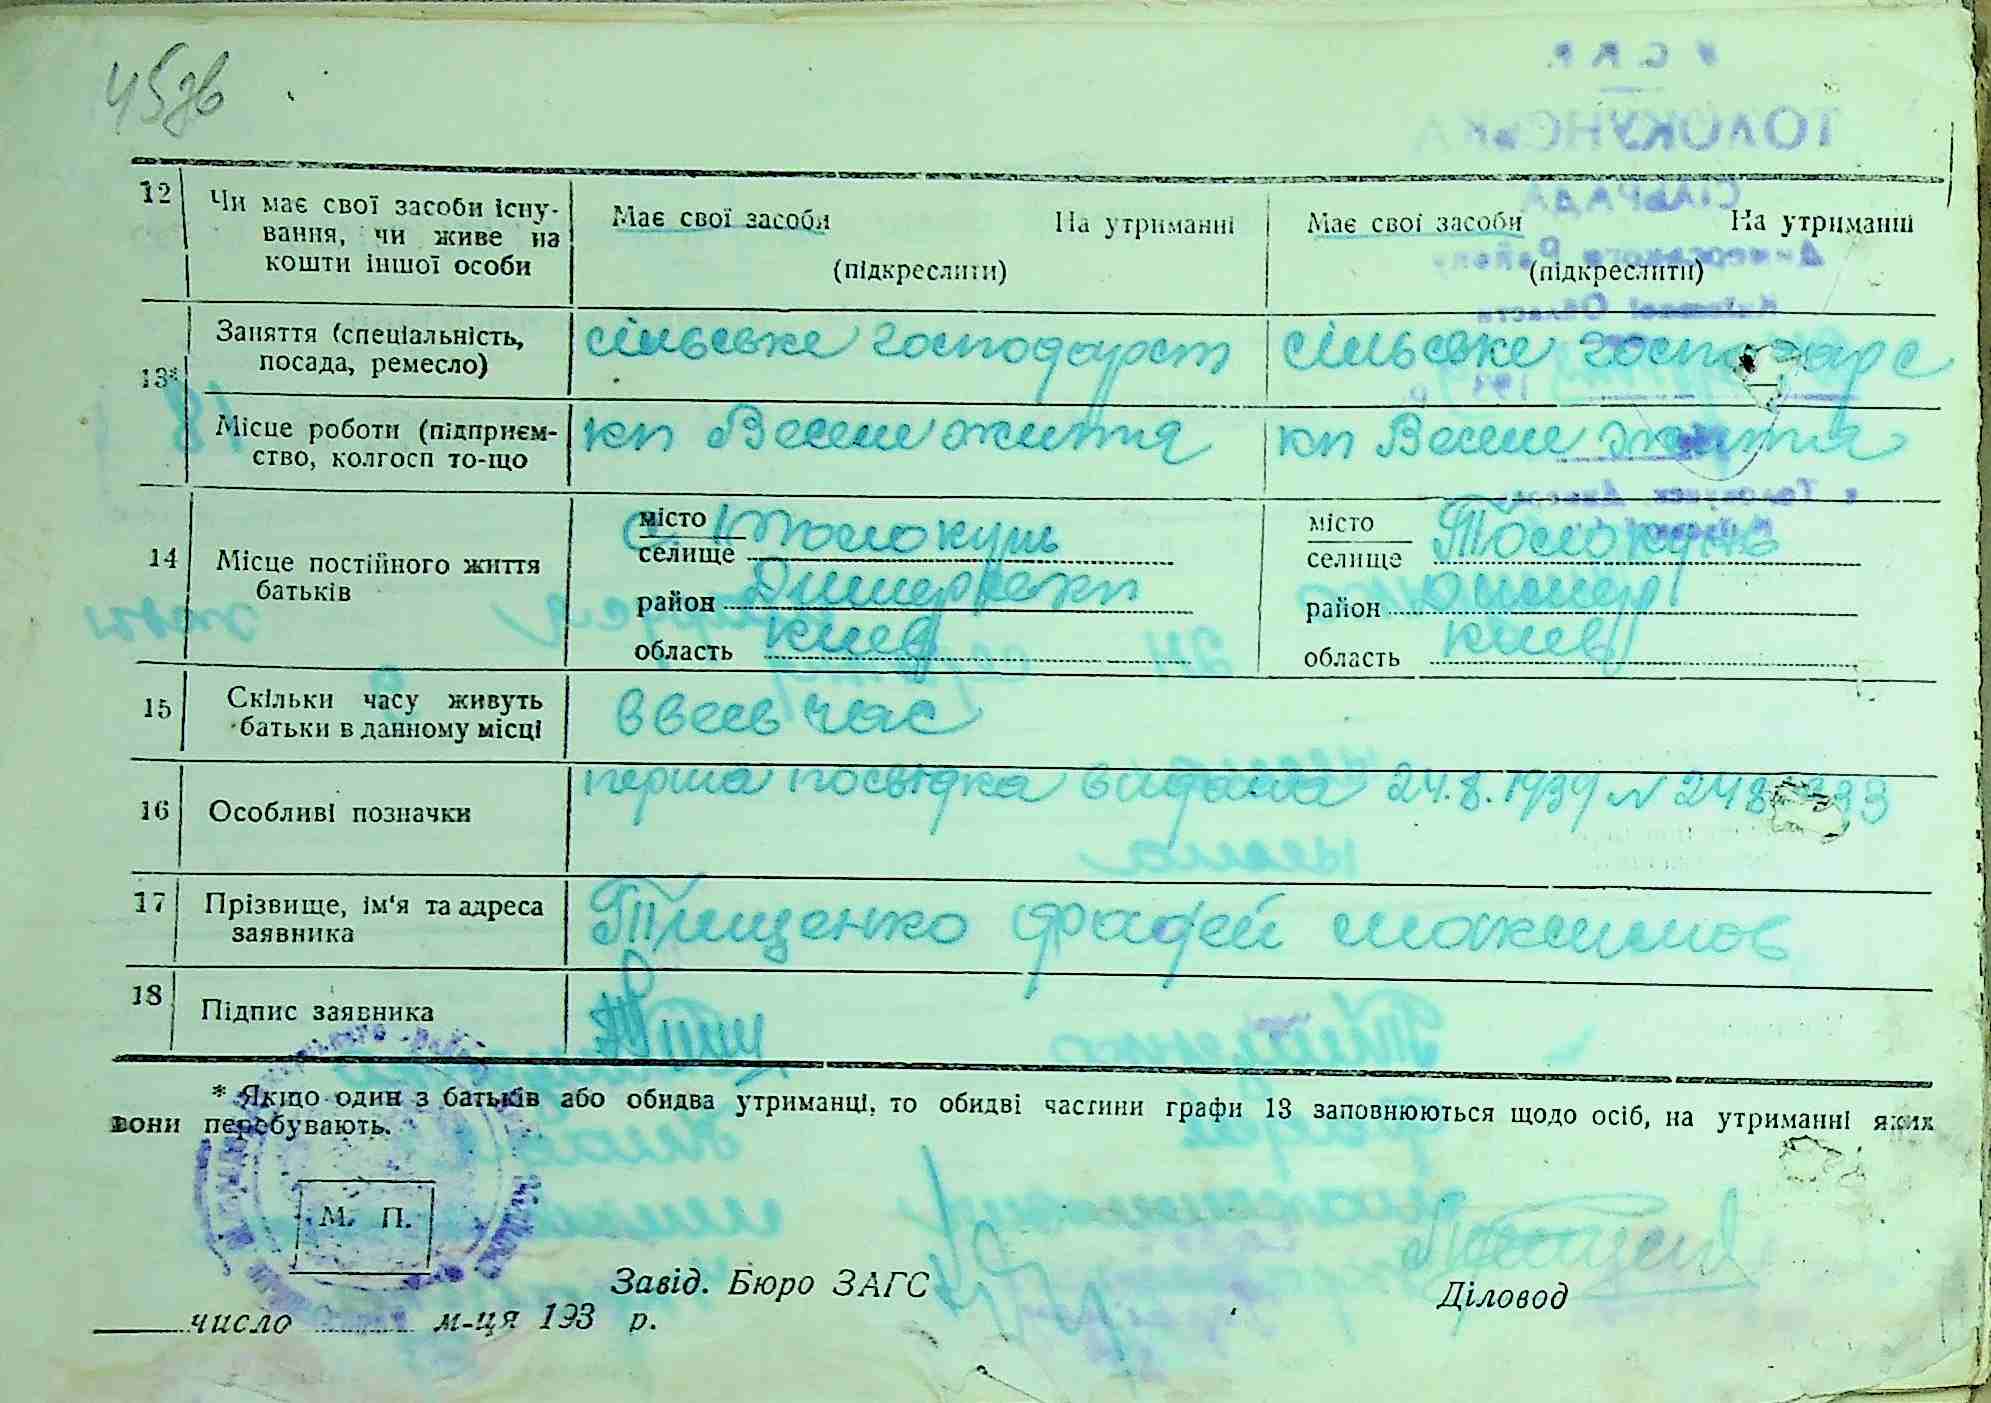 45зв
12 Чи має свої засоби існу-
вання, чи живе на
кошти іншої особи
Має свої засоби На утриманні
(підкреслити)
Має свої засоби На утриманні
(підкреслити)
13*
Заняття (спеціальність,
посада, ремесло)
сільське господарст
сільське господарс
Місце роботи (підприєм-
ство, колгосп то-що
кп Веселе життя
кп Веселе життя
14 Місце постійного життя
батьків
місто
селище с. Толокунь
район Димерськи
область Киев
місто
селище Толокунь
район Димер
область Киев
15 Скільки часу живуть
батьки в данному місці
ввесь час
16 Особливі позначки
перша посвідка видана 24.8.1939 N
17 Прізвище, ім'я та адреса
заявника
Тищенко Фадей Максимов
18 Підпис заявника
* Якщо один з батьків або обидва утриманці, то обидві частини графи 13 заповнюються щодо осіб, на утриманні яких
вони перебувають.
М. П.
Завід. Бюро ЗАГС
Діловод
число м-ця 193 р.